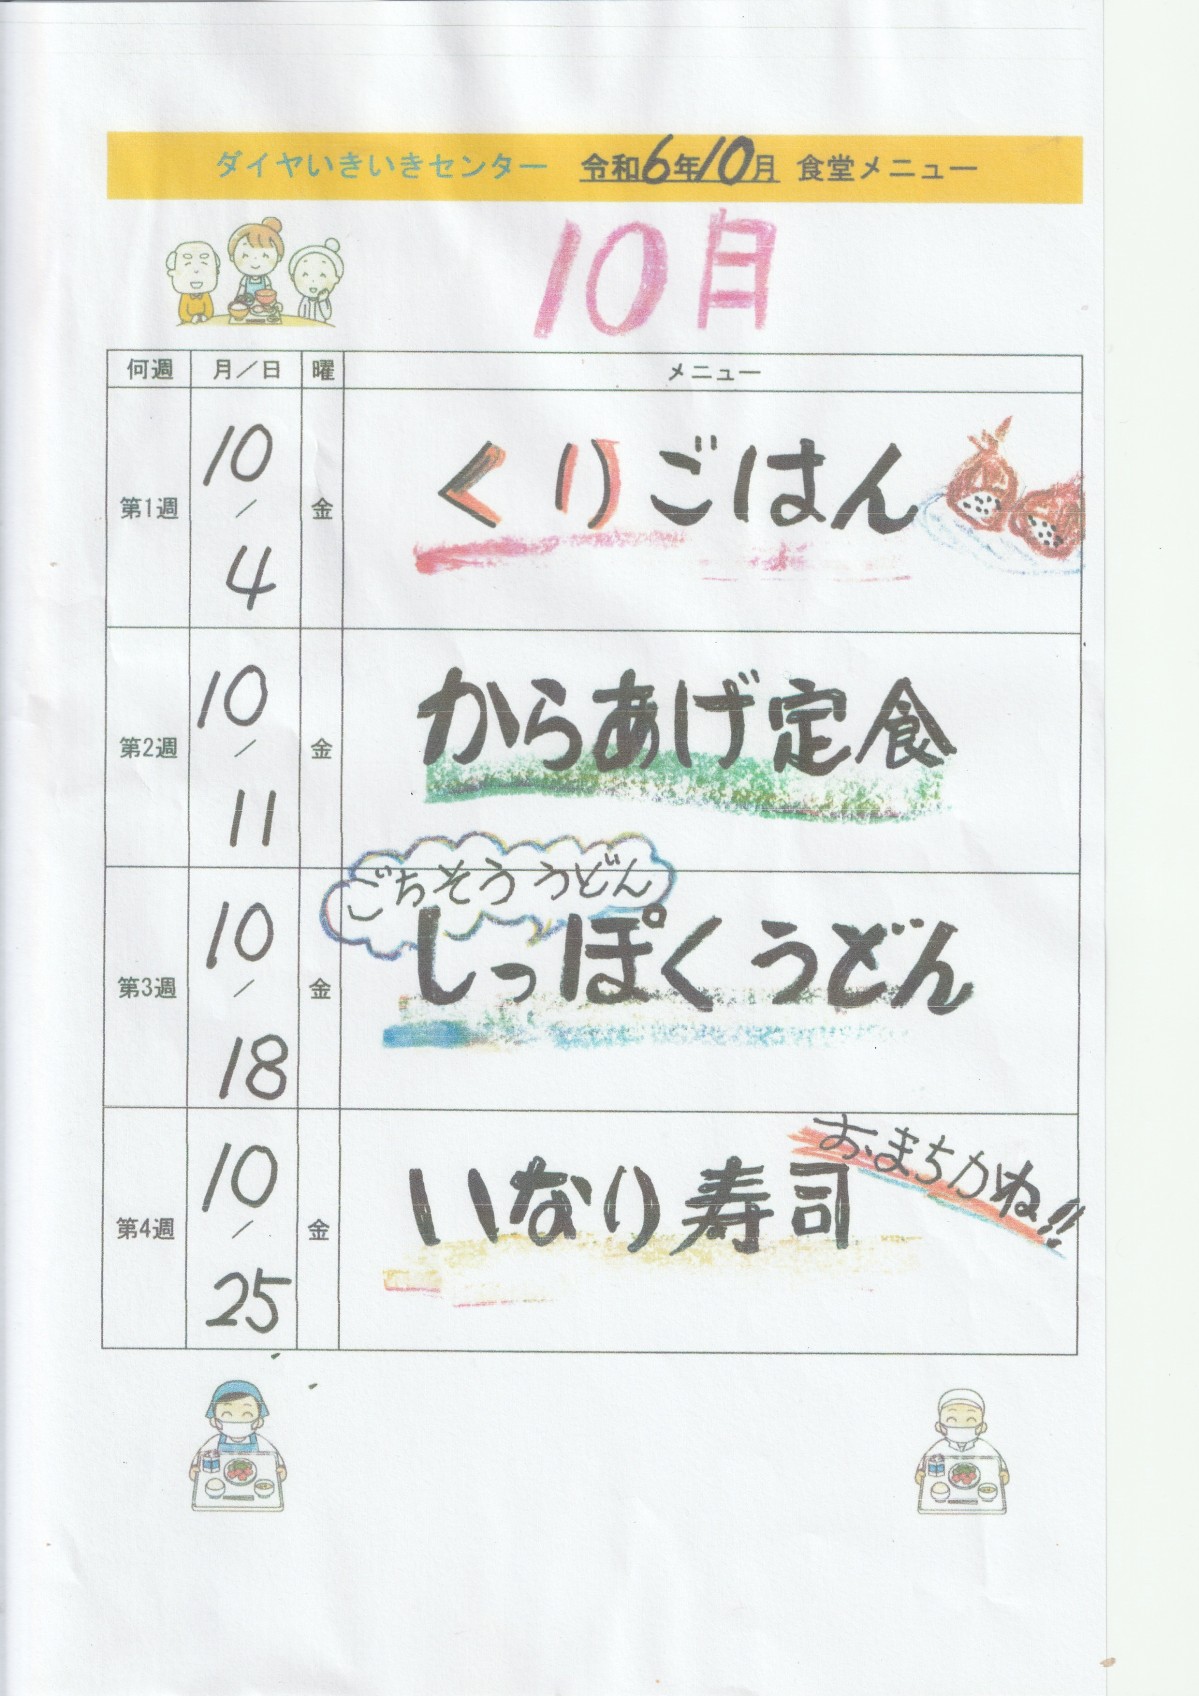 ダイヤいきいきセンター 令和6年10月 食堂メニュー
10月
何週 月／日 曜 メニュー
第1週 10／4 金 くりごはん
第2週 10／11 金 からあげ定食
ごちそううどん
第3週 10／18 金 しっぽくうどん
おまちかね!!
第4週 10／25 金 いなり寿司